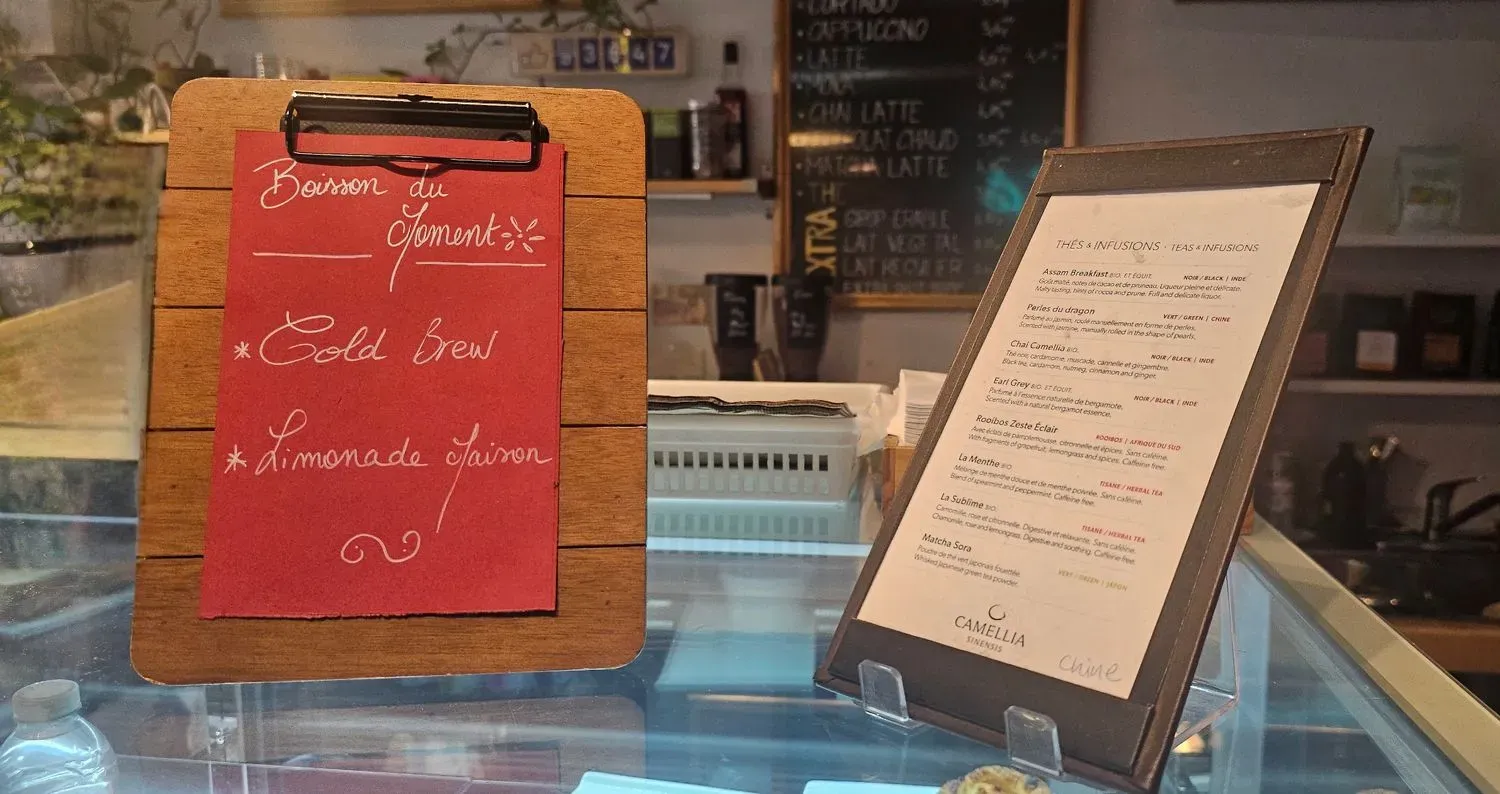 Boisson du
Moment
* Cold Brew
* Limonade Maison
3647
CORTADO
CAPPUCCINO
LATTE
MOKA
CHAI LATTE
CHOCOLAT CHAUD
MATCHA LATTE
THÉ
EXTRA
SIROP ÉRABLE
LAIT VEGETAL
LAIT REGULIER
THÉS & INFUSIONS · TEAS & INFUSIONS
Assam Breakfast BIO. ET ÉQUIT. NOIR / BLACK | INDE
Goût malté, notes de cacao et de pruneau. Liqueur pleine et délicate.
Malty tasting, hints of cocoa and prune. Full and delicate liquor.
Perles du dragon VERT / GREEN | CHINE
Parfumé au jasmin, roulé manuellement en forme de perles.
Scented with jasmine, manually rolled in the shape of pearls.
Chai Camellia BIO. NOIR / BLACK | INDE
Thé noir, cardamome, muscade, cannelle et gingembre.
Black tea, cardamom, nutmeg, cinnamon and ginger.
Earl Grey BIO. ET ÉQUIT. NOIR / BLACK | INDE
Parfumé à l'essence naturelle de bergamote.
Scented with a natural bergamot essence.
Rooibos Zeste Éclair ROOIBOS | AFRIQUE DU SUD
Avec éclats de pamplemousse, citronnelle et épices. Sans caféine.
With fragments of grapefruit, lemongrass and spices. Caffeine free.
La Menthe BIO TISANE / HERBAL TEA
Mélange de menthe douce et de menthe poivrée. Sans caféine.
Blend of spearmint and peppermint. Caffeine free.
La Sublime BIO. TISANE / HERBAL TEA
Camomille, rose et citronnelle. Digestive et relaxante. Sans caféine.
Chamomile, rose and lemongrass. Digestive and soothing. Caffeine free.
Matcha Sora VERT / GREEN | JAPON
Poudre de thé vert japonais fouettée.
Whisked Japanese green tea powder.
CAMELLIA
SINENSIS
Chine